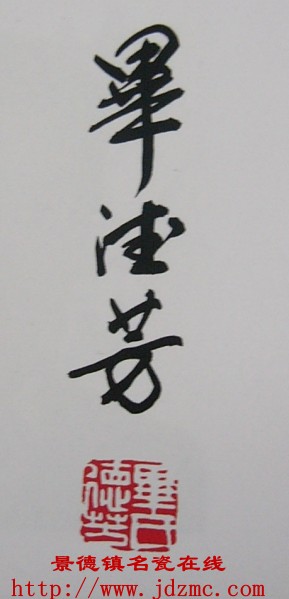 畢德芳
畢氏
德芳
景德镇名瓷在线
http://www.jdzmc.com